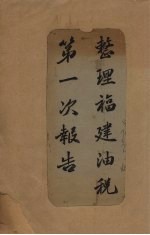 整理福建油稅
第一次報告